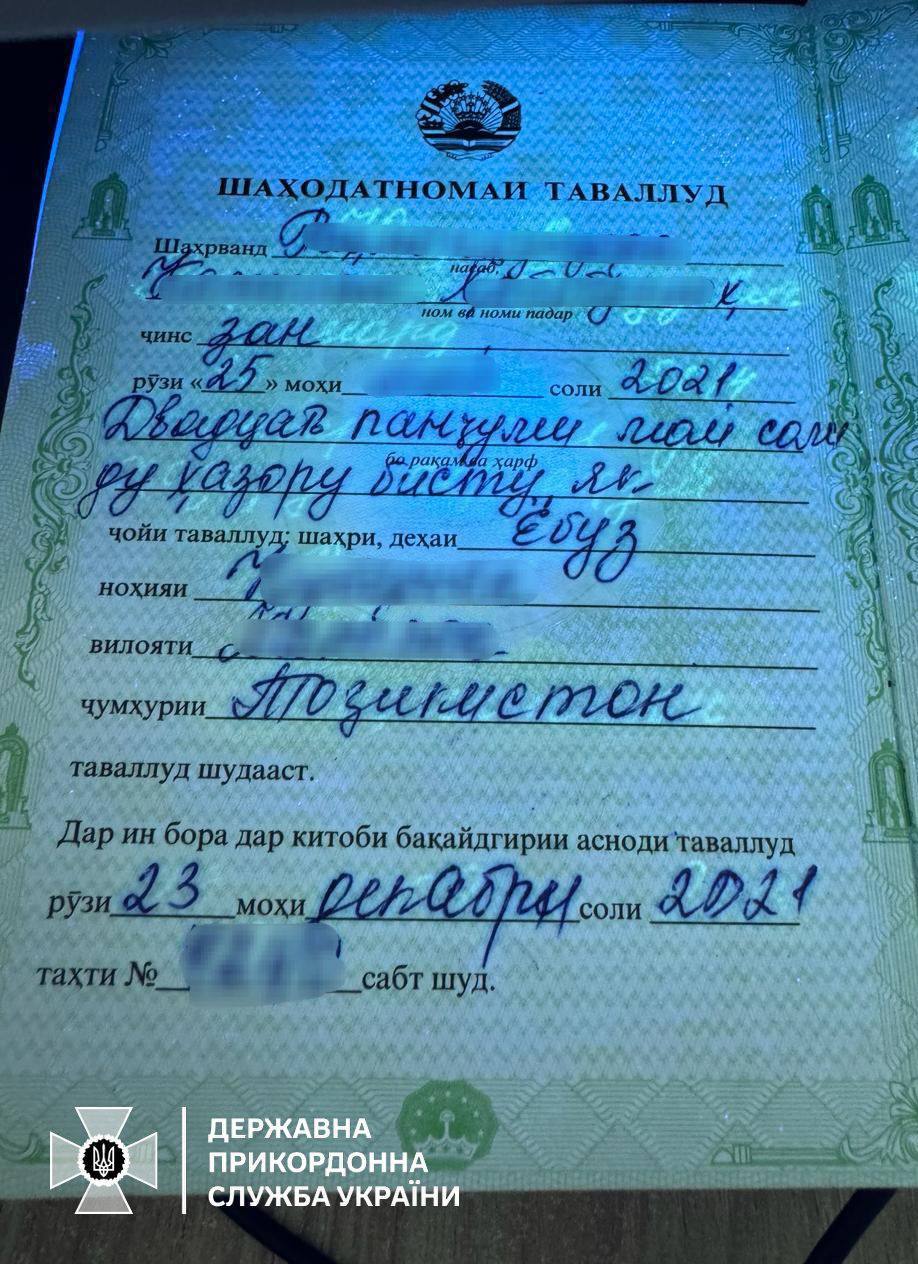 ШАҲОДАТНОМАИ ТАВАЛЛУД
Шаҳрванд
насаб,
ном ва номи падар
ҷинс зан
рӯзи «25» моҳи соли 2021
Двадцать панҷуми май соли
бо рақам ва ҳарф
ду ҳазору бисту як
ҷойи таваллуд: шаҳри, деҳаи Ёбуз
ноҳияи
вилояти
ҷумҳурии Тоҷикистон
таваллуд шудааст.
Дар ин бора дар китоби бақайдгирии асноди таваллуд
рӯзи 23 моҳи декабри соли 2021
таҳти № сабт шуд.
ДЕРЖАВНА
ПРИКОРДОННА
СЛУЖБА УКРАЇНИ